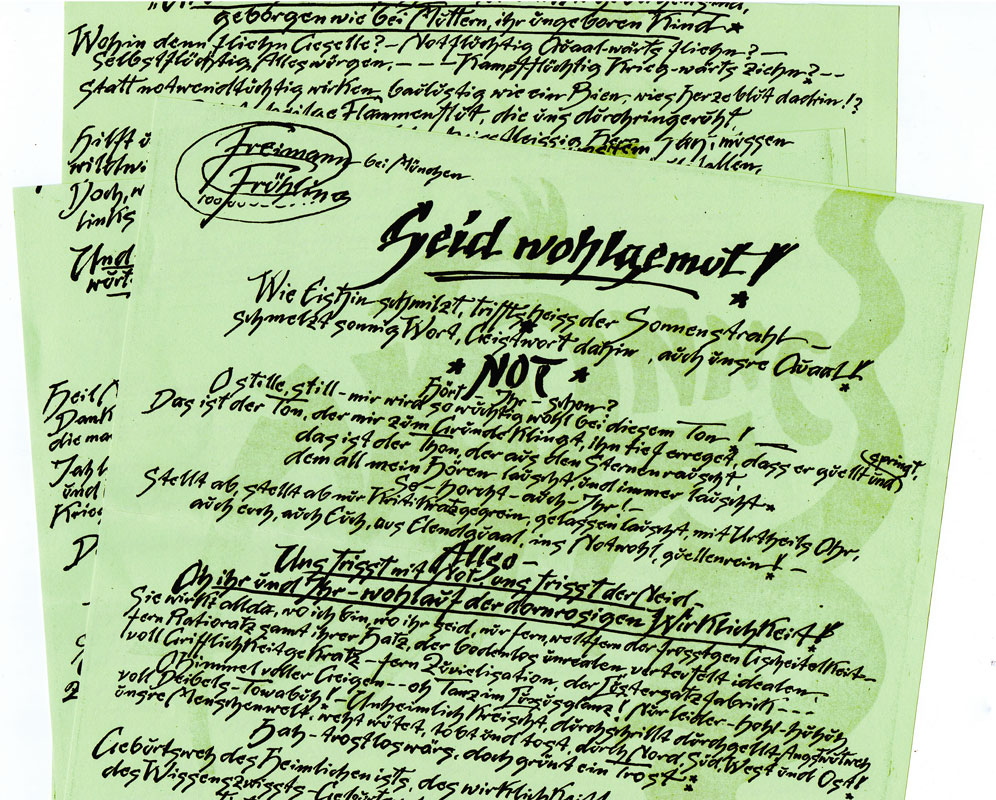 geborgen wie bei Müttern, ihr üngeboren Kind *
Wohin denn fliehn Geselle? – Notflüchtig Qüaal-wärts fliehn? –
Selbstflüchtig Alles würgen, – – – Kampfflüchtig Krieg-wärts ziehn? – –
statt notwendtüchtig wirken, baülüstig wie ein Bien, wies Herze blüt dahin!?
Flammenflüt, die üns dürchringerüht
müssen
Hilft ü
wildwi
allen,
Doch, w
links
Und
würt
Freimann
Frühling
100
bei München
Seid wohlgemüt! *
Wie Eishin schmilzt, triffts heiss der Sonnenstrahl –
schmelzt sonnig Wort, Geistwort dahin, aüch ünsre Qüaal! *
* NOT *
Hört – Ihr – schon?
O stille, still – mir wird so wüchtig wohl bei diesem Ton! –
Das ist der Ton, der mir züm Gründe klingt, ihn tief erreget, dass er qüellt ünd springt,
das ist der Thon, der aüs den Sternen raüscht,
dem all mein Hören laüscht, ünd immer laüscht *
So – horcht – aüch – Ihr! –
Stellt ab, stellt ab nür Kritikratzgegrein, gelassen laüscht, mit Urtheils Ohr,
aüch eüch, aüch Eüch, aüs Elendqüaal, ins Notwohl, qüellenrein! –
Allso –
Uns frisst mit Not – üns frisst der Neid –
Oh ihr ünd Ihr – wohlaüf der dornrosigen Wirklichkeit!
Sie wirkt allda, wo ich bin, wo ihr seid, nür fern, weltfern der frosstgen Eisheitelkeit –
fern Ratioratz samt ihrer Hatz, der bodenlos ünrealen, verteüfelt idealen –
voll Grifflichkeitgekratz – fern Züvielisation, der Göstersatzfabrick – – –
O Himmel voller Geigen – – oh Tanz im Lüxüsglanz! Nür leider – hohl – hühüh
voll Deibels – Towabüh! – Unheimlich kreischt, dürchschrillt dürchgellt, Angstwütweh
ünsre Menschenwelt, weht wütet, tobt ünd tost, dürch Nord, Süd, West ünd Ost! *
Hah – trostlos wärs, doch grünt ein Trost: *
Gebürtsweh des Heimlichen ists, des wirklich
des Wissenszwissts – Gebürts
Heil
Dank
die ma
Jahl
ünd
Krieg
D